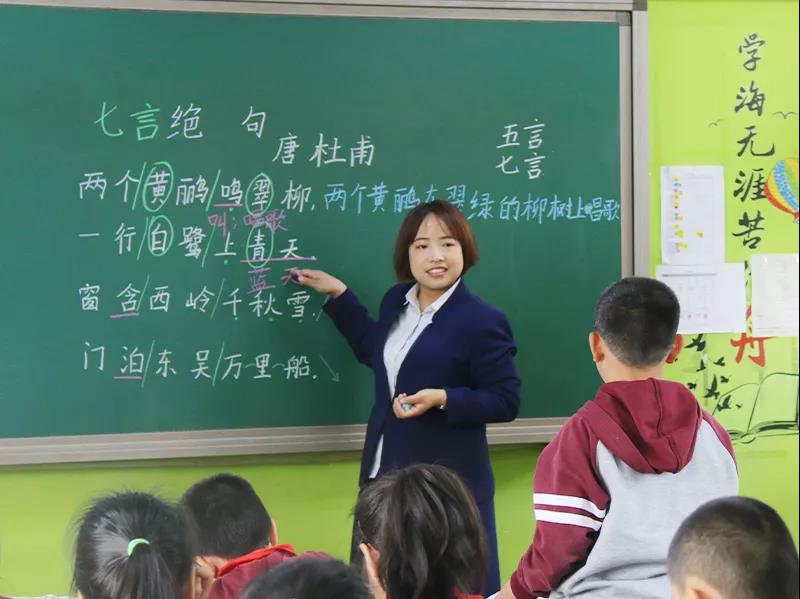 七言绝 句
唐 杜甫
五言
七言
两个/黄鹂/鸣翠柳, 两个黄鹂在翠绿的柳树上唱歌
叫;唱歌
一行/白鹭/上青天.
蓝天
窗含/西岭/千秋雪,
门泊/东吴/万里船.
学海无涯苦
舟